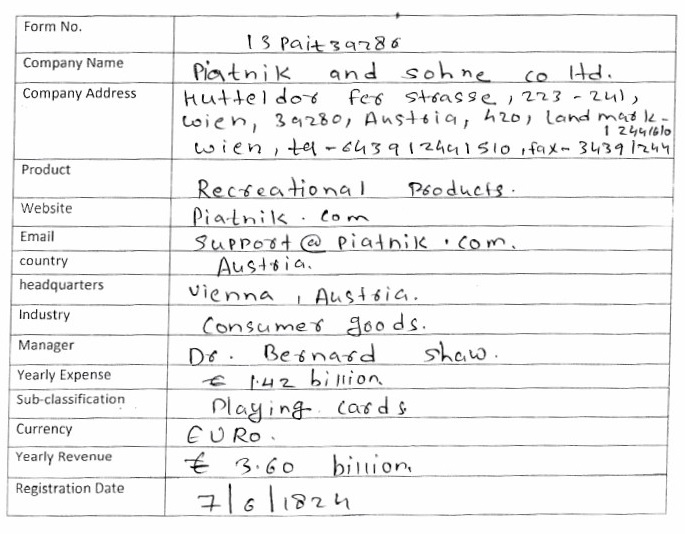 Form No. 13Pait39286
Company Name Piatnik and sohne co ltd.
Company Address Hutteldor fer strasse, 223-241,
wien, 39280, Austria, 420, landmark-
12441610
wien, tel-643912441510, fax-34391244
Product Recreational Products.
Website Piatnik.com
Email Support@piatnik.com.
country Austria.
headquarters Vienna, Austria.
Industry Consumer goods.
Manager Dr. Bernard shaw.
Yearly Expense € 1.42 billion
Sub-classification Playing cards
Currency EURO.
Yearly Revenue € 3.60 billion.
Registration Date 7/6/1824